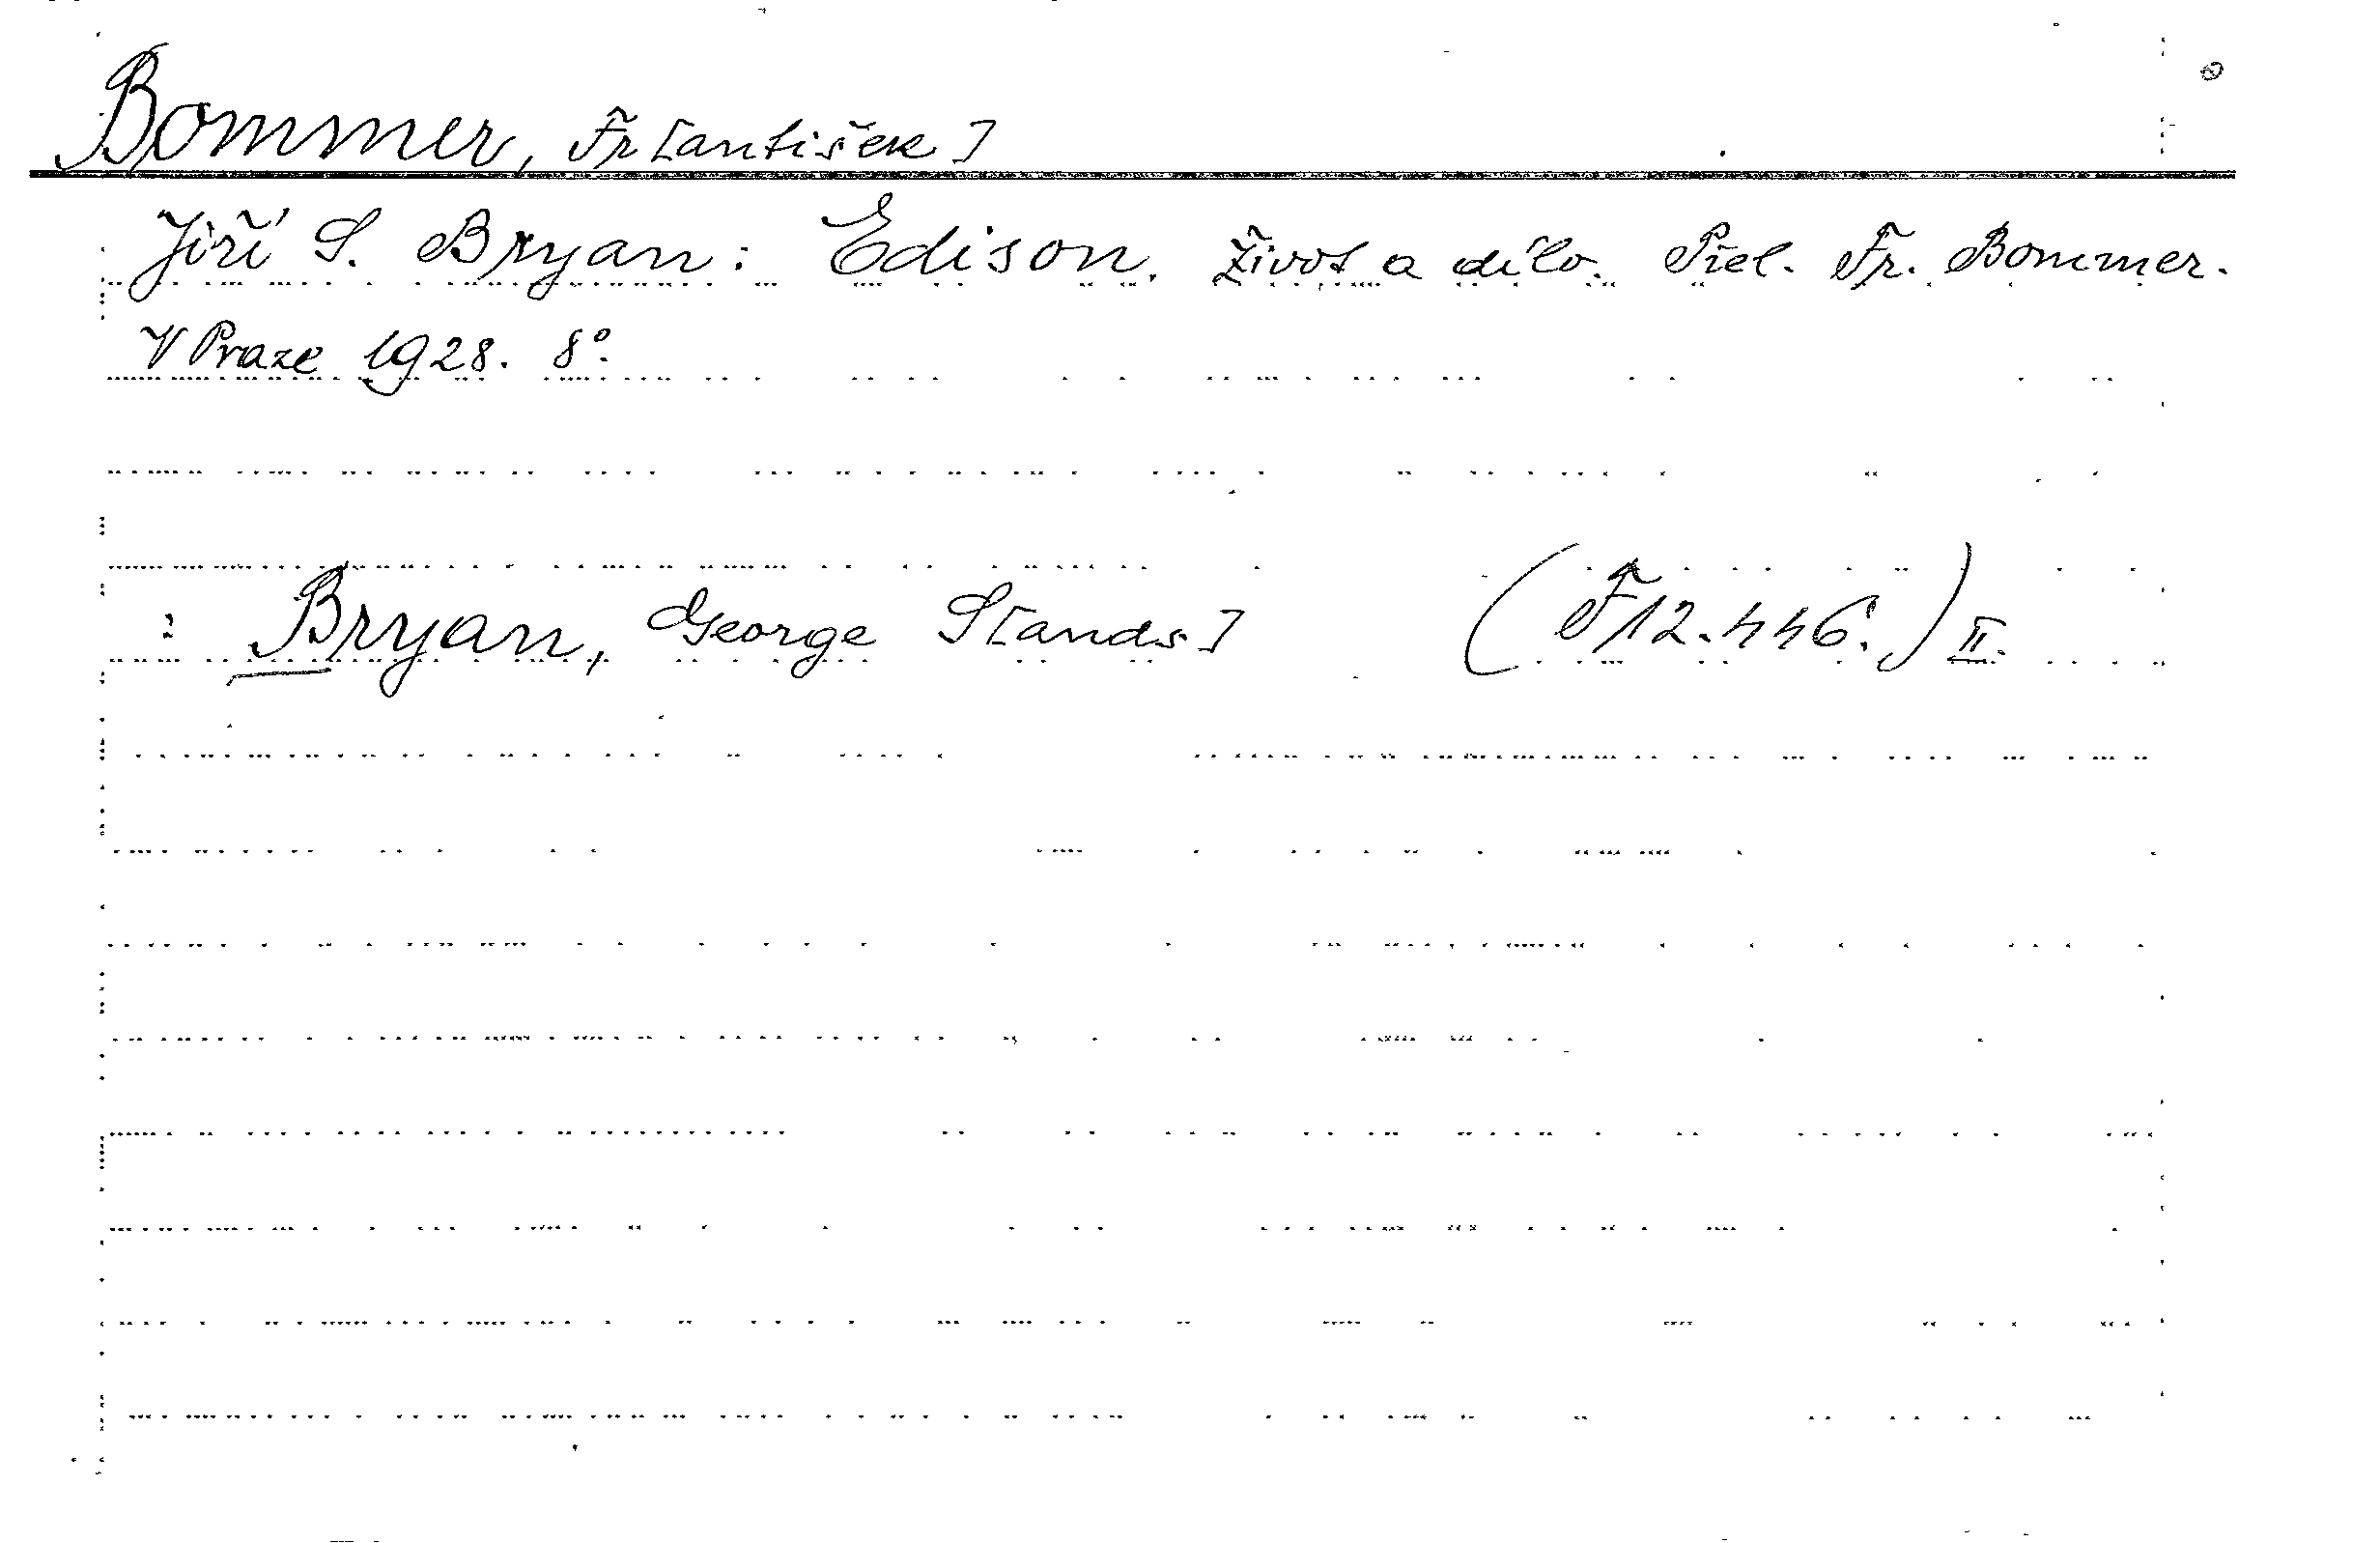 Bommer, Fr[antišek]
Jiří S. Bryan: Edison. Život a dílo. Přel. Fr. Bommer.
V Praze 1928. 8°.
: Bryan, George S[tands] (F12.446.) II.